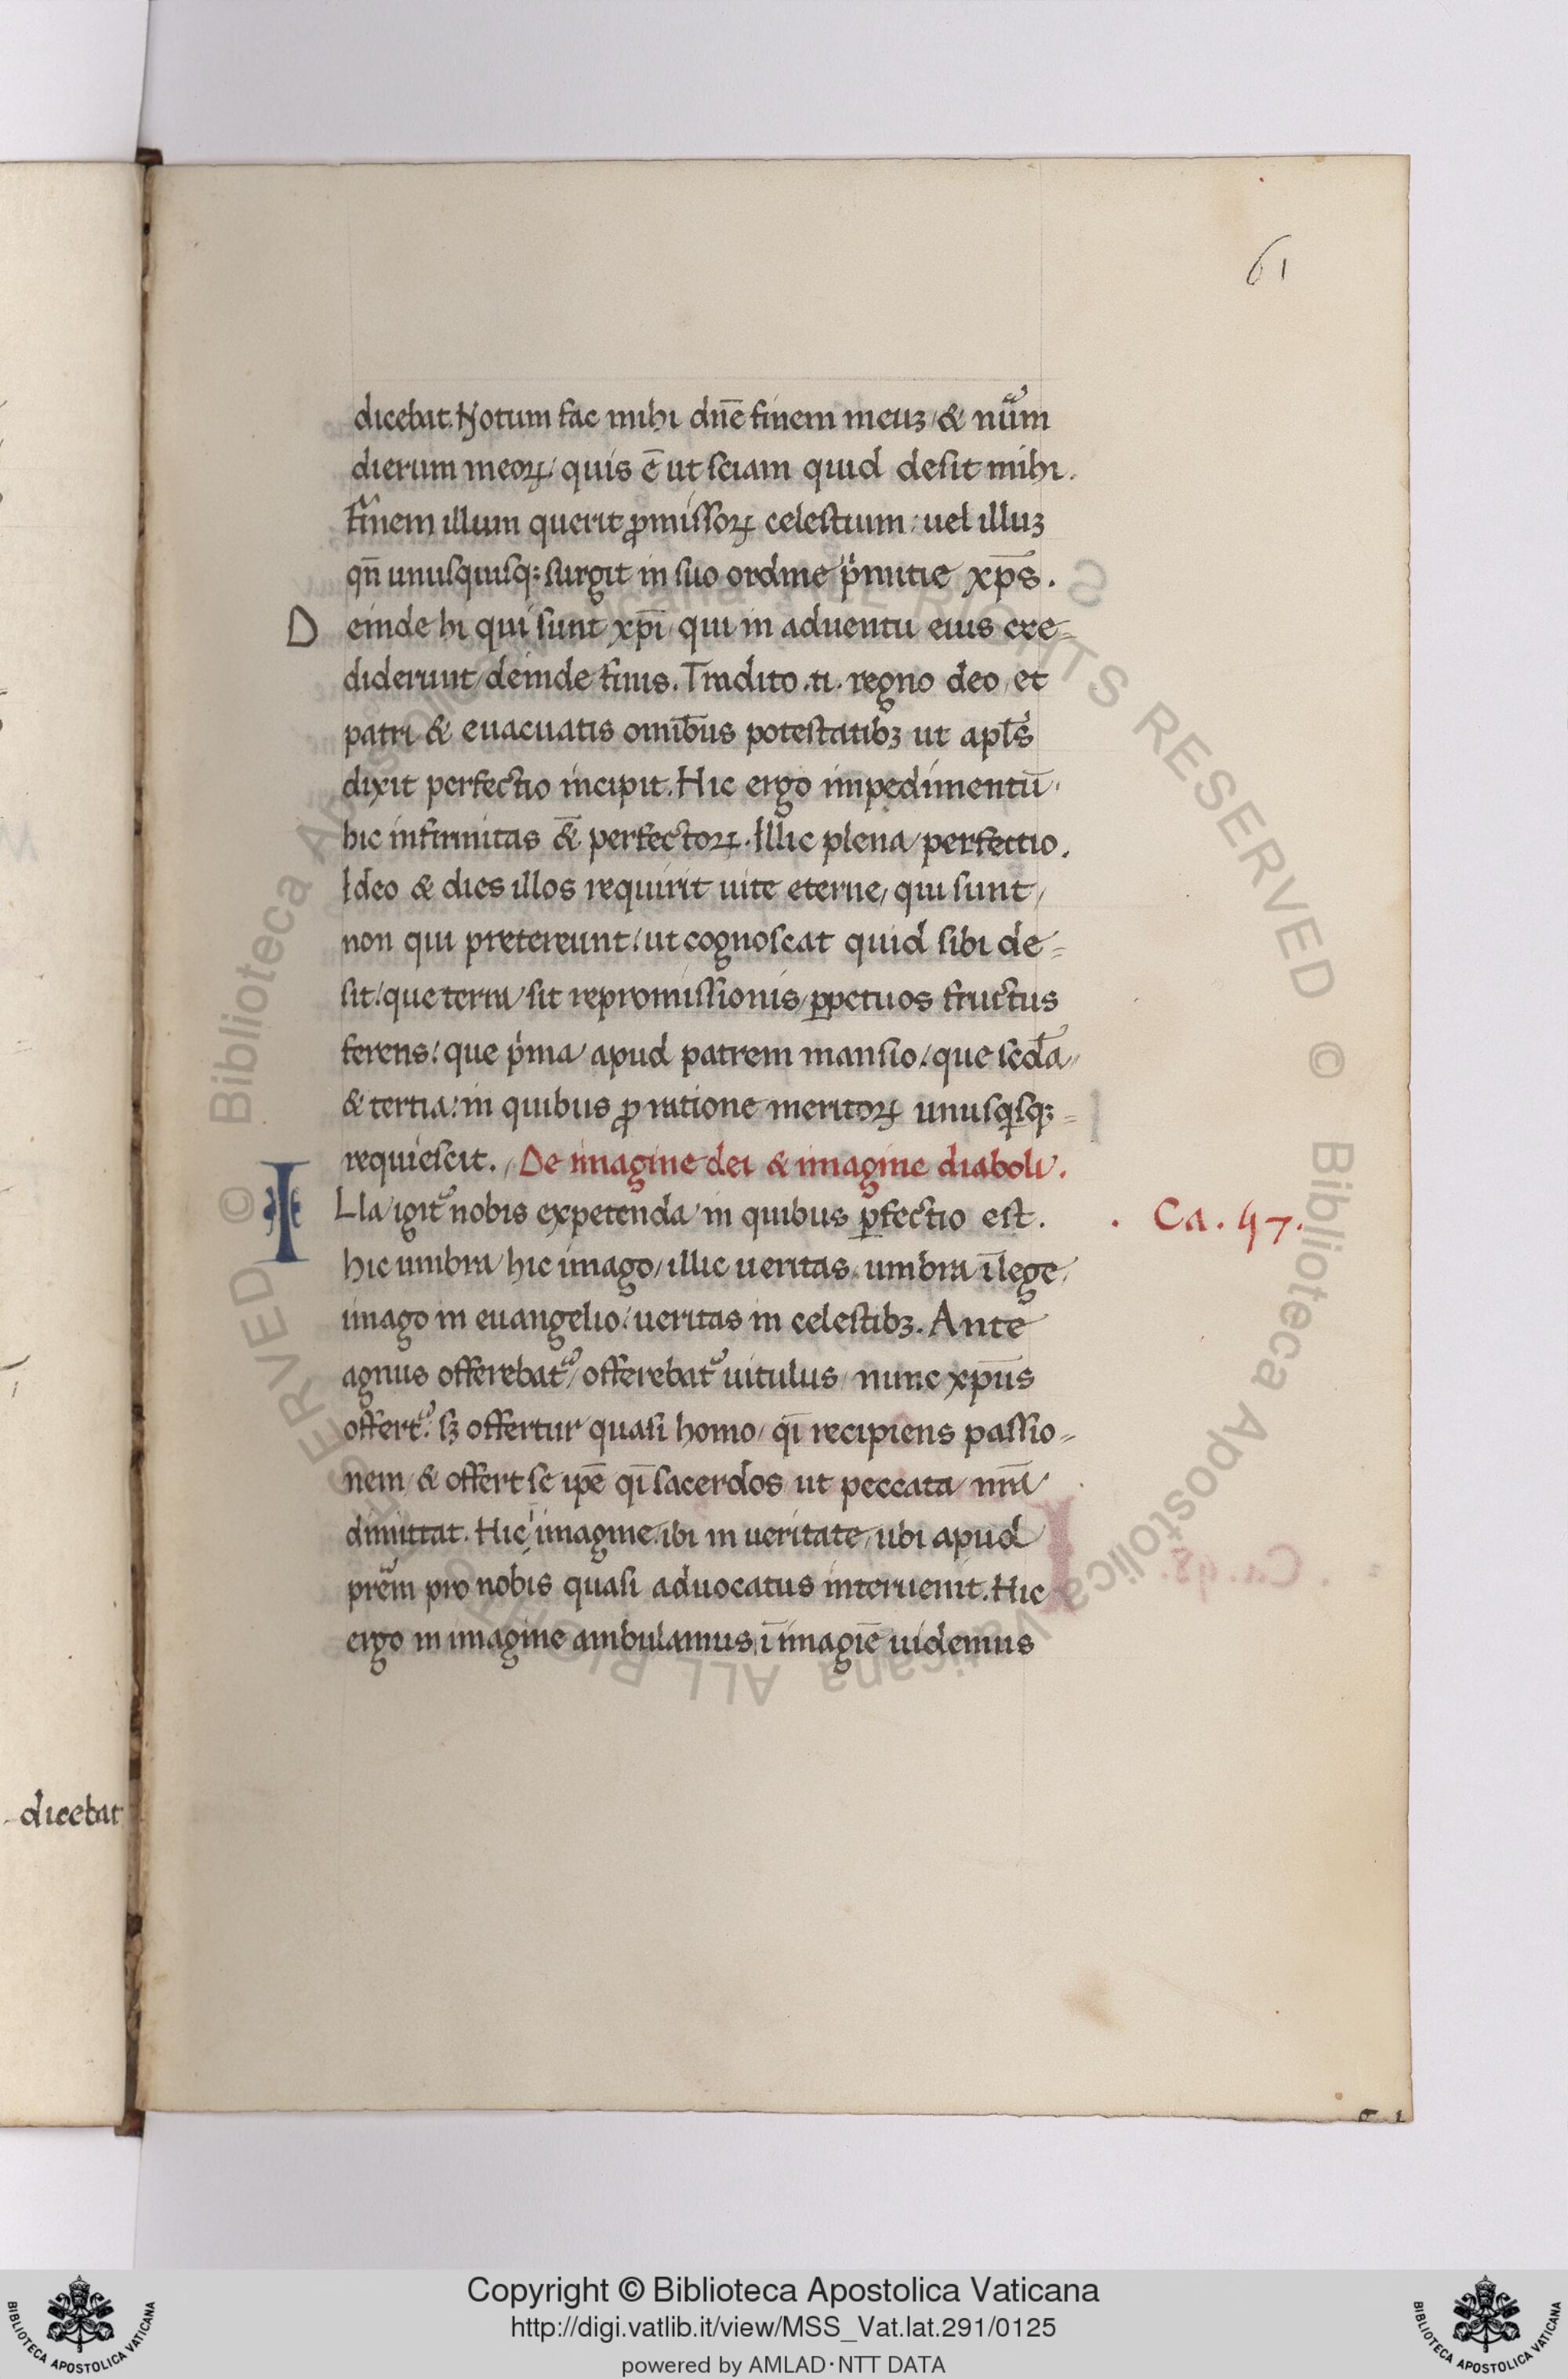 61
dicebat. Notum fac mihi dñe finem meuꝫ / & nuͣm
dierum meoꝝ / quis ē ut sciam quid desit mihi.
Finem illum querit ꝓmissoꝝ celestium: uel illuꝫ
qñ unusquisq; surgit in suo ordine pͥmitie xp̄s.
Deinde hi qui sunt xp̄i / qui in aduentu eius cre=
diderunt / deinde finis. Tradito .n. regno deo / et
patri & euacuatis omib̄us potestatibꝫ ut apl̄s
dixit perfectio incipit. Hic ergo impedimentū /
hic infirmitas &̄ perfectoꝝ. Illic plena perfectio.
Ideo & dies illos requirit uite eterne / qui sunt /
non qui pretereunt / ut cognoscat quid sibi de=
sit / que terra sit repromissionis / ꝑpetuos fructus
ferens / que pͥma apud patrem mansio / que scd̄a /
& tertia: in quibus ꝓ ratione meritoꝝ unusqͥsqꝫ =
requiescit. De imagine dei & imagine diaboli.
ILla igit᷑ nobis expetenda in quibus ꝑfectio est.
. Ca. 47.
hic umbra / hic imago / illic ueritas. umbra ī lege /
imago in euangelio / ueritas in celestibꝫ. Ante
agnus offerebat᷑ / offerebat᷑ uitulus / nunc xp̄us
offert᷑. sꝫ offertur quasi homo / qī recipiens passio=
nem / & offert se ip̄e qī sacerdos / ut peccata nr̄a
dimittat. Hic ͥ imagine. ibi in ueritate / ubi apud
prēm pro nobis quasi aduocatus interuenit. Hic
ergo in imagine ambulamus / ī imagiē uidemus
dicebat
© Biblioteca Apostolica Vaticana ALL RIGHTS RESERVED © Biblioteca Apostolica Vaticana ALL RIGHTS RESERVED
Copyright © Biblioteca Apostolica Vaticana
http://digi.vatlib.it/view/MSS_Vat.lat.291/0125
powered by AMLAD·NTT DATA
BIBLIOTECA APOSTOLICA VATICANA
BIBLIOTECA APOSTOLICA VATICANA